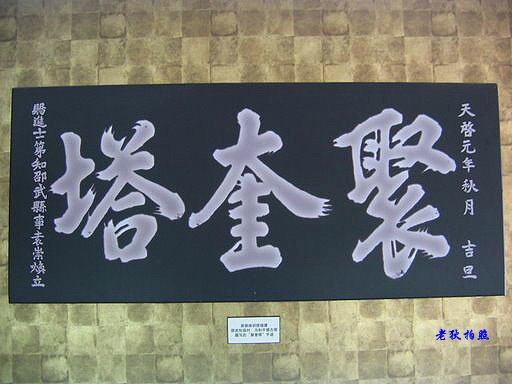 天啓元年秋月 吉旦
聚奎塔
賜進士第知邵武縣事袁崇煥立
老狄拍照